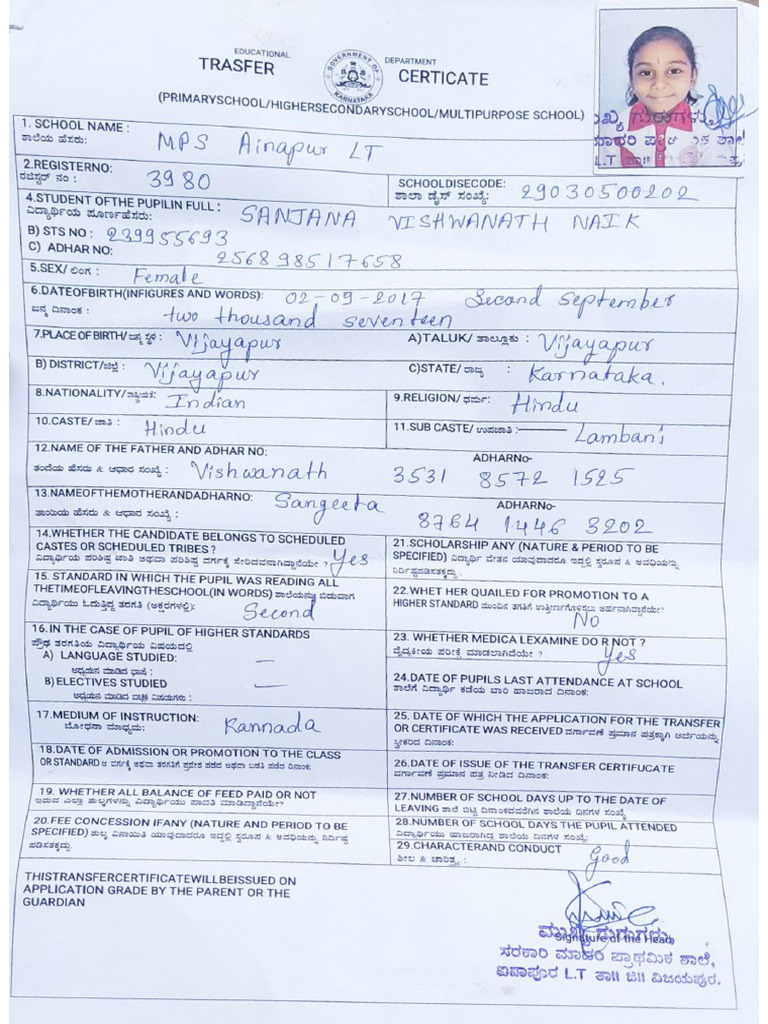 EDUCATIONAL DEPARTMENT
TRASFER CERTICATE
GOVERNMENT OF KARNATAKA
(PRIMARYSCHOOL/HIGHERSECONDARYSCHOOL/MULTIPURPOSE SCHOOL)
1. SCHOOL NAME : MPS Ainapur LT
ಶಾಲೆಯ ಹೆಸರು:
2.REGISTERNO: 3980
ರಜಿಸ್ಟರ್ ನಂ :
SCHOOLDISECODE: 29030500202
ಶಾಲಾ ಡೈಸ್ ಸಂಖ್ಯೆ:
4.STUDENT OFTHE PUPILIN FULL : SANJANA VISHWANATH NAIK
ವಿದ್ಯಾರ್ಥಿಯ ಪೂರ್ಣಹೆಸರು:
B) STS NO : 239955693
C) ADHAR NO: 256898517658
5.SEX/ ಲಿಂಗ : Female
6.DATEOFBIRTH(INFIGURES AND WORDS): 02-09-2017 Second September
ಜನ್ಮ ದಿನಾಂಕ : two thousand seventeen
7.PLACE OF BIRTH/ಜನ್ಮ ಸ್ಥಳ : Vijayapur
A)TALUK/ ತಾಲ್ಲೂಕು : Vijayapur
B) DISTRICT/ಜಿಲ್ಲೆ : Vijayapur
C)STATE/ ರಾಜ್ಯ : Karnataka.
8.NATIONALITY/ Indian
9.RELIGION/ ಧರ್ಮ: Hindu
10.CASTE/ ಜಾತಿ : Hindu
11.SUB CASTE/ ಉಪಜಾತಿ : Lambani
12.NAME OF THE FATHER AND ADHAR NO: ADHARNo-
ತಂದೆಯ ಹೆಸರು & ಆಧಾರ ಸಂಖ್ಯೆ : Vishwanath 3531 8572 1525
13.NAMEOFTHEMOTHERANDADHARNO: Sangeeta ADHARNo-
ತಾಯಿಯ ಹೆಸರು & ಆಧಾರ ಸಂಖ್ಯೆ : 8764 1446 3202
14.WHETHER THE CANDIDATE BELONGS TO SCHEDULED
CASTES OR SCHEDULED TRIBES ?
ವಿದ್ಯಾರ್ಥಿಯ ಪರಿಶಿಷ್ಟ ಜಾತಿ ಅಥವಾ ಪರಿಶಿಷ್ಟ ವರ್ಗಕ್ಕೆ ಸೇರಿದವನಾಗಿದ್ದಾನೆಯೇ ? Yes
15. STANDARD IN WHICH THE PUPIL WAS READING ALL
THETIMEOFLEAVINGTHESCHOOL(IN WORDS) ಶಾಲೆಯನ್ನು ಬಿಡುವಾಗ
ವಿದ್ಯಾರ್ಥಿಯು ಓದುತ್ತಿದ್ದ ತರಗತಿ (ಅಕ್ಷರಗಳಲ್ಲಿ): Second
16. IN THE CASE OF PUPIL OF HIGHER STANDARDS
ಪ್ರೌಢ ತರಗತಿಯ ವಿದ್ಯಾರ್ಥಿಯ ವಿಷಯದಲ್ಲಿ
A) LANGUAGE STUDIED: —
ಅಧ್ಯಯನ ಮಾಡಿದ ಭಾಷೆ :
B) ELECTIVES STUDIED —
ಅಧ್ಯಯನ ಮಾಡಿದ ಐಚ್ಛಿಕ ವಿಷಯಗಳು :
17.MEDIUM OF INSTRUCTION: Kannada
ಬೋಧನಾ ಮಾಧ್ಯಮ:
18.DATE OF ADMISSION OR PROMOTION TO THE CLASS
OR STANDARD ಆ ವರ್ಗಕ್ಕೆ ಅಥವಾ ತರಗತಿಗೆ ಪ್ರವೇಶ ಪಡೆದ ಅಥವಾ ಬಡತಿ ಪಡೆದ ದಿನಾಂಕ:
19. WHETHER ALL BALANCE OF FEED PAID OR NOT
ಇರುವ ಎಲ್ಲಾ ಶುಲ್ಕಗಳನ್ನು ವಿದ್ಯಾರ್ಥಿಯು ಪಾವತಿ ಮಾಡಿದ್ದಾನೆಯೇ?
20.FEE CONCESSION IFANY (NATURE AND PERIOD TO BE
SPECIFIED) ಶುಲ್ಕ ವಿನಾಯಿತಿ ಯಾವುದಾದರೂ ಇದ್ದಲ್ಲಿ ಸ್ವರೂಪ & ಅವಧಿಯನ್ನು ನಿರ್ದಿಷ್ಟ
ಪಡಿಸತಕ್ಕದ್ದು
21.SCHOLARSHIP ANY (NATURE & PERIOD TO BE
SPECIFIED) ವಿದ್ಯಾರ್ಥಿ ವೇತನ ಯಾವುದಾದರೂ ಇದ್ದಲ್ಲಿ ಸ್ವರೂಪ & ಅವಧಿಯನ್ನು
ನಿರ್ದಿಷ್ಟಪಡಿಸತಕ್ಕದ್ದು
22.WHET HER QUAILED FOR PROMOTION TO A
HIGHER STANDARD ಮುಂದಿನ ತರಗತಿಗೆ ಉತ್ತೀರ್ಣಗೊಳಿಸಲು ಅರ್ಹನಾಗಿದ್ದಾನೆಯೇ?
No
23. WHETHER MEDICA LEXAMINE DO R NOT ?
ವೈದ್ಯಕೀಯ ಪರೀಕ್ಷೆ ಮಾಡಲಾಗಿದೆಯೇ ? Yes
24.DATE OF PUPILS LAST ATTENDANCE AT SCHOOL
ಶಾಲೆಗೆ ವಿದ್ಯಾರ್ಥಿ ಕಡೆಯ ಬಾರಿ ಹಾಜರಾದ ದಿನಾಂಕ:
25. DATE OF WHICH THE APPLICATION FOR THE TRANSFER
OR CERTIFICATE WAS RECEIVED ವರ್ಗಾವಣೆ ಪ್ರಮಾಣ ಪತ್ರಕ್ಕಾಗಿ ಅರ್ಜಿಯನ್ನು
ಸ್ವೀಕರಿಸಿದ ದಿನಾಂಕ:
26.DATE OF ISSUE OF THE TRANSFER CERTIFUCATE
ವರ್ಗಾವಣೆ ಪ್ರಮಾಣ ಪತ್ರ ನೀಡಿದ ದಿನಾಂಕ:
27.NUMBER OF SCHOOL DAYS UP TO THE DATE OF
LEAVING ಶಾಲೆ ಬಿಟ್ಟ ದಿನಾಂಕದವರೆಗಿನ ಶಾಲೆಯ ದಿನಗಳ ಸಂಖ್ಯೆ
28.NUMBER OF SCHOOL DAYS THE PUPIL ATTENDED
ವಿದ್ಯಾರ್ಥಿಯು ಹಾಜರಾಗಿದ್ದ ಶಾಲೆಯ ದಿನಗಳ ಸಂಖ್ಯೆ:
29.CHARACTERAND CONDUCT Good
ಶೀಲ & ಚಾರಿತ್ರ್ಯ :
THISTRANSFERCERTIFICATEWILLBEISSUED ON
APPLICATION GRADE BY THE PARENT OR THE
GUARDIAN
ಮುಖ್ಯ ಗುರುಗಳು,
Signature of the Head,
ಸರಕಾರಿ ಮಾದರಿ ಪ್ರಾಥಮಿಕ ಶಾಲೆ,
ಐನಾಪೂರ L.T ತಾ|| ಜಿ|| ವಿಜಯಪುರ.